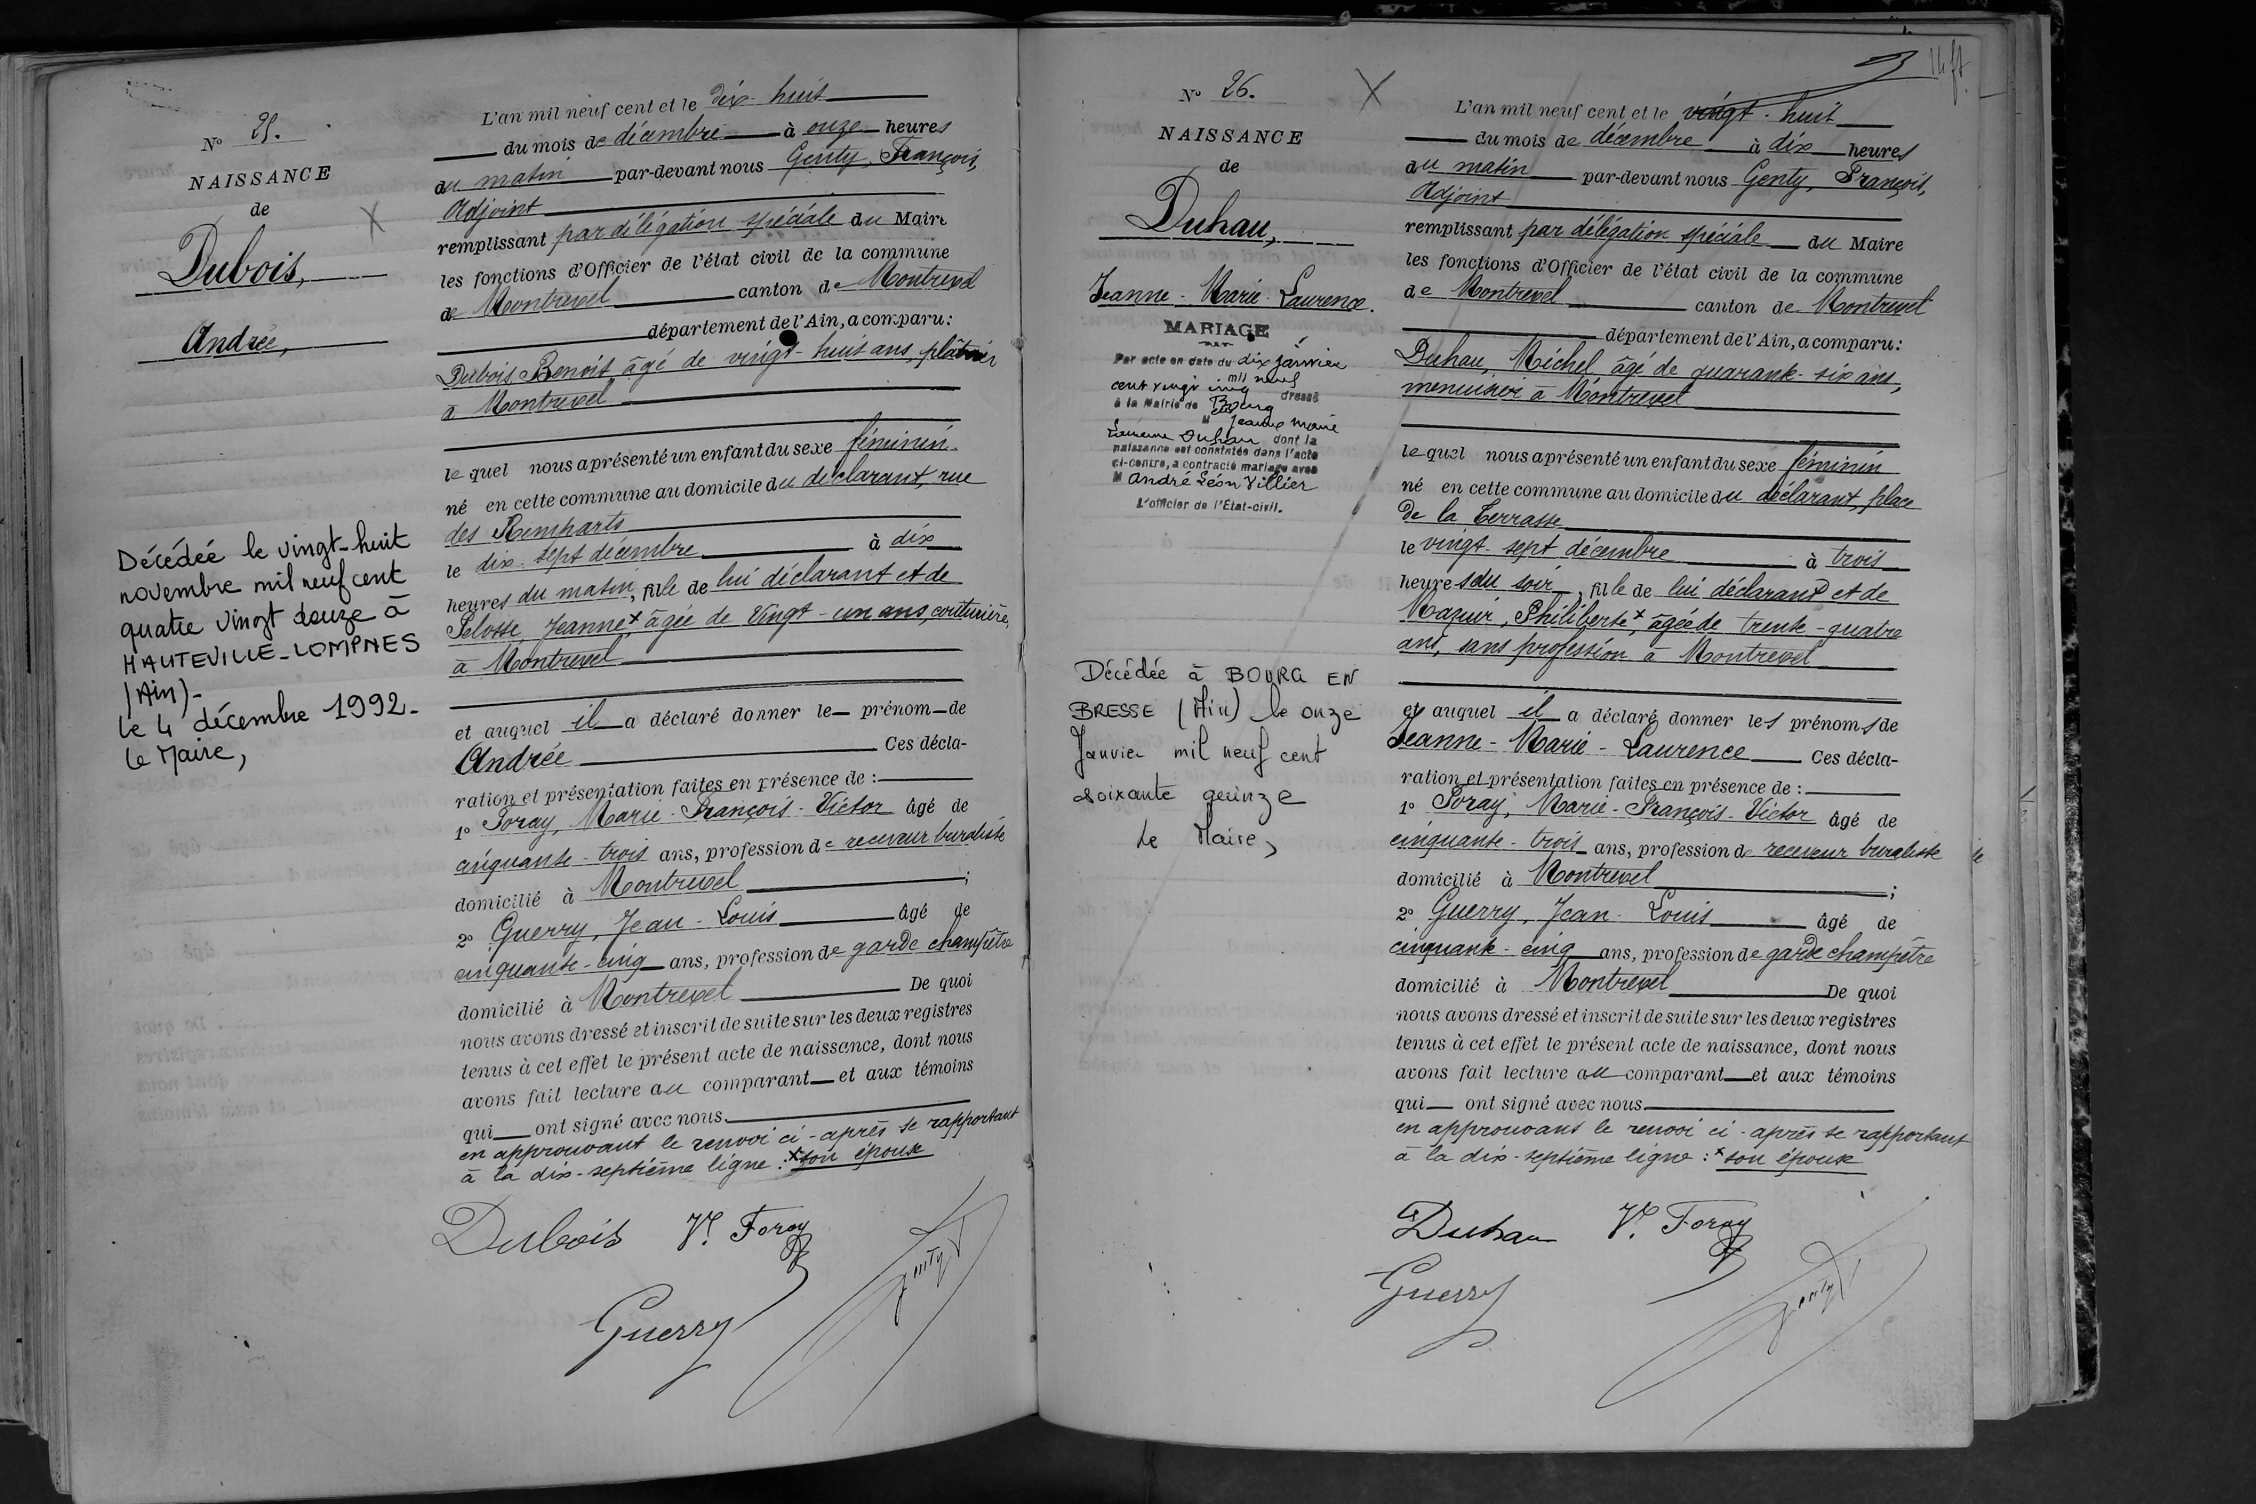 N° 25.
NAISSANCE
de
Dubois,
Andrée,
Décédée le vingt-huit
novembre mil neuf cent
quatre vingt douze à
HAUTEVILLE-LOMPNES
(Ain)-
le 4 décembre 1992-
le Maire,
L'an mil neuf cent et le dix-huit
du mois de décembre à onze heures
du matin par-devant nous Genty, François,
Adjoint
remplissant par délégation spéciale du Maire
les fonctions d'Officier de l'état civil de la commune
de Montrevel canton de Montrevel
département de l'Ain, a comparu:
Dubois Benoit âgé de vingt-huit ans, plâtrier
à Montrevel
le quel nous a présenté un enfant du sexe féminin
né en cette commune au domicile du déclarant, rue
des Remparts
le dix-sept décembre à dix
heures du matin, fille de lui déclarant et de
Pelosse, Jeanne x âgée de vingt-un ans, couturière,
à Montrevel
et auquel il a déclaré donner le prénom de
Andrée Ces décla-
ration et présentation faites en présence de :
1° Foray, Marie-François-Victor âgé de
cinquante-trois ans, profession de receveur buraliste
domicilié à Montrevel ;
2° Guerry, Jean-Louis âgé de
cinquante-cinq ans, profession de garde champêtre
domicilié à Montrevel De quoi
nous avons dressé et inscrit de suite sur les deux registres
tenus à cet effet le présent acte de naissance, dont nous
avons fait lecture au comparant et aux témoins
qui ont signé avec nous.
en approuvant le renvoi ci-après se rapportant
à la dix-septième ligne : x son épouse
Dubois Vr. Foray
Guerry Genty
N° 26.
NAISSANCE
de
Duhau,
Jeanne-Marie-Laurence.
MARIAGE
Par acte en date du dix janvier
mil neuf
cent vingt cinq dressé
à la Mairie de Bourg
M Jeanne Marie
Laurence Duhau dont la
naissance est constatée dans l'acte
ci-contre, a contracté mariage avec
M André Léon Villier
L'officier de l'État-civil.
Décédée à BOURG EN
BRESSE (Ain) le onze
Janvier mil neuf cent
soixante quinze
Le Maire,
L'an mil neuf cent et le vingt-huit
du mois de décembre à dix heures
du matin par-devant nous Genty, François,
Adjoint
remplissant par délégation spéciale du Maire
les fonctions d'Officier de l'état civil de la commune
de Montrevel canton de Montrevel
département de l'Ain, a comparu:
Duhau, Michel âgé de quarante-six ans,
menuisier à Montrevel
le quel nous a présenté un enfant du sexe féminin
né en cette commune au domicile du déclarant, place
de la Terrasse
le vingt-sept décembre à trois
heures du soir, fille de lui déclarant et de
Mazuir, Philiberte x, âgée de trente-quatre
ans, sans profession à Montrevel
et auquel il a déclaré donner les prénoms de
Jeanne-Marie-Laurence Ces décla-
ration et présentation faites en présence de :
1° Foray, Marie-François-Victor âgé de
cinquante-trois ans, profession de receveur buraliste
domicilié à Montrevel ;
2° Guerry, Jean-Louis âgé de
cinquante-cinq ans, profession de garde champêtre
domicilié à Montrevel De quoi
nous avons dressé et inscrit de suite sur les deux registres
tenus à cet effet le présent acte de naissance, dont nous
avons fait lecture au comparant et aux témoins
qui ont signé avec nous
en approuvant le renvoi ci-après se rapportant
à la dix-septième ligne : x son épouse
Duhau Vr. Foray
Guerry Genty